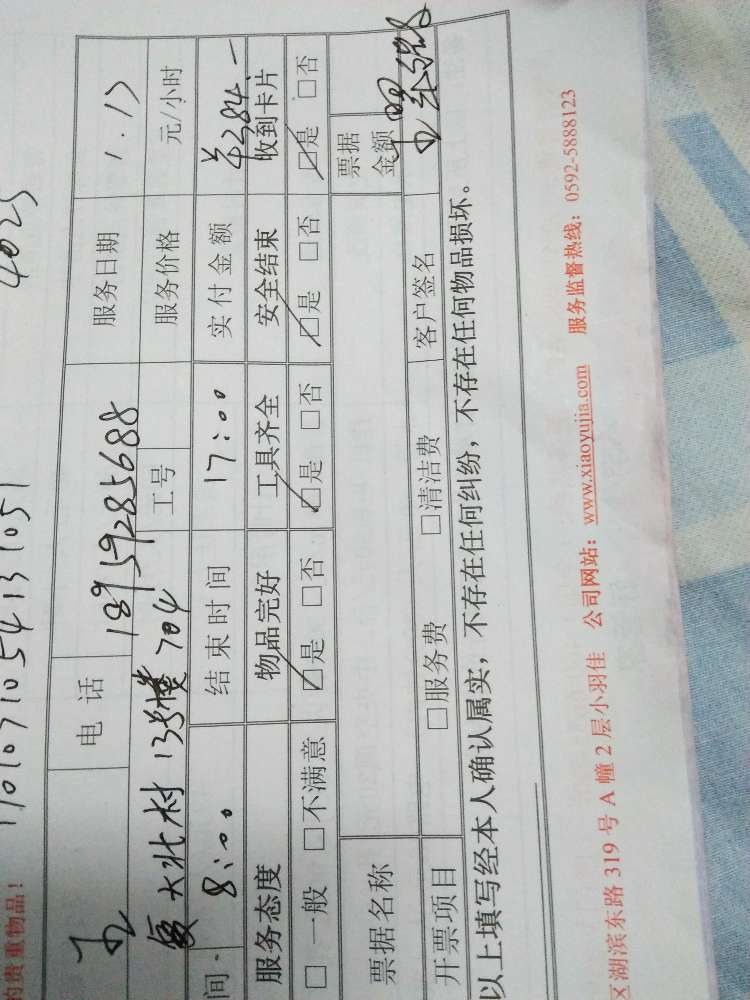 的贵重物品!
1701071054131051
4025
王 电话 18959285688 服务日期 1.17
厦大北村13号楼704 工号 服务价格 元/小时
间 8:00 结束时间 17:00 实付金额 ¥384.-
服务态度 物品完好 工具齐全 安全结束 收到卡片
□一般 □不满意 ☑是 □否 ☑是 □否 ☑是 □否 ☑是 □否
票据名称 票据金额
开票项目 □服务费 □清洁费 客户签名
以上填写经本人确认属实,不存在任何纠纷,不存在任何物品损坏。
区湖滨东路 319 号 A 幢 2 层小羽佳 公司网站:www.xiaoyujia.com 服务监督热线:0592-5888123